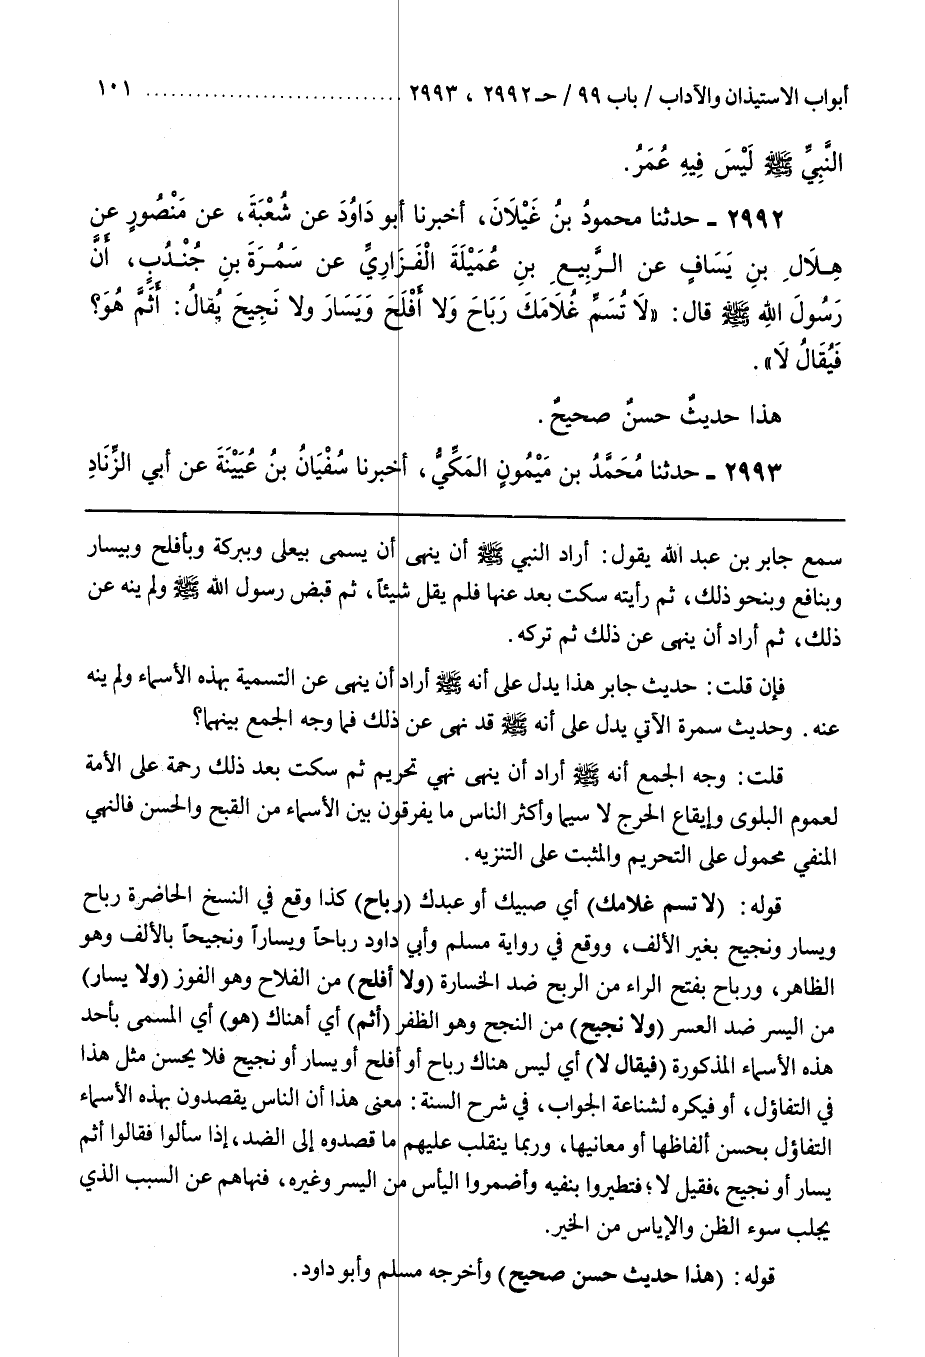 أبواب الاستيذان والآداب / باب ٩٩ / حـ ٢٩٩٢ ، ٢٩٩٣ .............................. ١٠١
النَّبِيِّ ﷺ لَيْسَ فِيهِ عُمَرُ.
٢٩٩٢ ـ حدثنا محمودُ بنُ غَيْلَانَ، أخبرنا أبو دَاوُدَ عن شُعْبَةَ، عن مَنْصُورٍ عن
هِلَالِ بنِ يَسَافٍ عن الرَّبِيعِ بنِ عُمَيْلَةَ الْفَزَارِيِّ عن سَمُرَةَ بنِ جُنْدُبٍ، أَنَّ
رَسُولَ اللهِ ﷺ قال: «لَا تُسَمِّ غُلَامَكَ رَبَاحَ وَلا أَفْلَحَ وَيَسَارَ ولا نَجِيحَ يُقالُ: أَثَمَّ هُوَ؟
فَيُقَالُ لَا».
هذا حديثٌ حسنٌ صحيحٌ.
٢٩٩٣ ـ حدثنا مُحَمَّدُ بن مَيْمُونٍ المَكِّيُّ، أخبرنا سُفْيَانُ بنُ عُيَيْنَةَ عن أبي الزِّنَادِ
سمع جابر بن عبد الله يقول: أراد النبي ﷺ أن ينهى أن يسمى بيعلى وببركة وبأفلح وبيسار
وبنافع وبنحو ذلك، ثم رأيته سكت بعد عنها فلم يقل شيئاً، ثم قبض رسول الله ﷺ ولم ينه عن
ذلك، ثم أراد أن ينهى عن ذلك ثم تركه.
فإن قلت: حديث جابر هذا يدل على أنه ﷺ أراد أن ينهى عن التسمية بهذه الأسماء ولم ينه
عنه. وحديث سمرة الآتي يدل على أنه ﷺ قد نهى عن ذلك فما وجه الجمع بينهما؟
قلت: وجه الجمع أنه ﷺ أراد أن ينهى نهي تحريم ثم سكت بعد ذلك رحمة على الأمة
لعموم البلوى وإيقاع الحرج لا سيما وأكثر الناس ما يفرقون بين الأسماء من القبح والحسن فالنهي
المنفي محمول على التحريم والمثبت على التنزيه.
قوله: (لا تسم غلامك) أي صبيك أو عبدك (رباح) كذا وقع في النسخ الحاضرة رباح
ويسار ونجيح بغير الألف، ووقع في رواية مسلم وأبي داود رباحاً ويساراً ونجيحاً بالألف وهو
الظاهر، ورباح بفتح الراء من الربح ضد الخسارة (ولا أفلح) من الفلاح وهو الفوز (ولا يسار)
من اليسر ضد العسر (ولا نجيح) من النجح وهو الظفر (أثم) أي أهناك (هو) أي المسمى بأحد
هذه الأسماء المذكورة (فيقال لا) أي ليس هناك رباح أو أفلح أو يسار أو نجيح فلا يحسن مثل هذا
في التفاؤل، أو فيكره لشناعة الجواب، في شرح السنة: معنى هذا أن الناس يقصدون بهذه الأسماء
التفاؤل بحسن ألفاظها أو معانيها، وربما ينقلب عليهم ما قصدوه إلى الضد، إذا سألوا فقالوا أثم
يسار أو نجيح، فقيل لا؛ فتطيروا بنفيه وأضمروا اليأس من اليسر وغيره، فنهاهم عن السبب الذي
يجلب سوء الظن والإياس من الخير.
قوله: (هذا حديث حسن صحيح) وأخرجه مسلم وأبو داود.